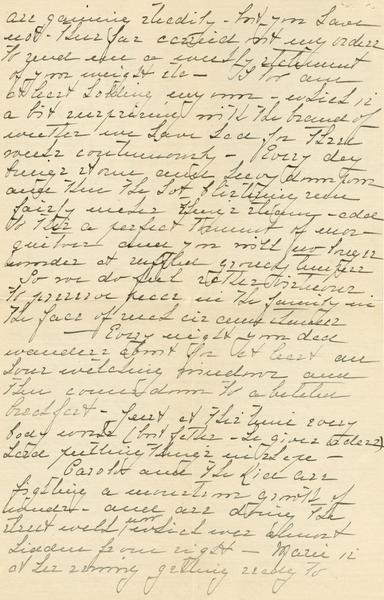 are gaining steadily - but you have
not - thus far carried out my orders
to send me a weekly statement
of your weight etc - I too am
at least holding my own - which is
a bit surprising with the brand of
weather we have had for three
weeks continuously - Every day
brings storm and heavy downpour
and then the hot blistering sun
fairly makes things steam - add
to this a perfect torment of mos-
quitoes and you will no longer
wonder at ruffled
So we do feel rather virtuous
to preserve peace in the family in
the face of such circumstances
Every night your dad
wanders about for at least an
hour watching windows and
then comes down to a belated
breakfast - Just at this time every
body works (but father - he gives orders)
and putting things in shape -
Carol and the Kid are
fighting a monstrous growth of
weeds - and are doing the
street well which was almost
hidden from sight - Marie is
at her running getting ready to